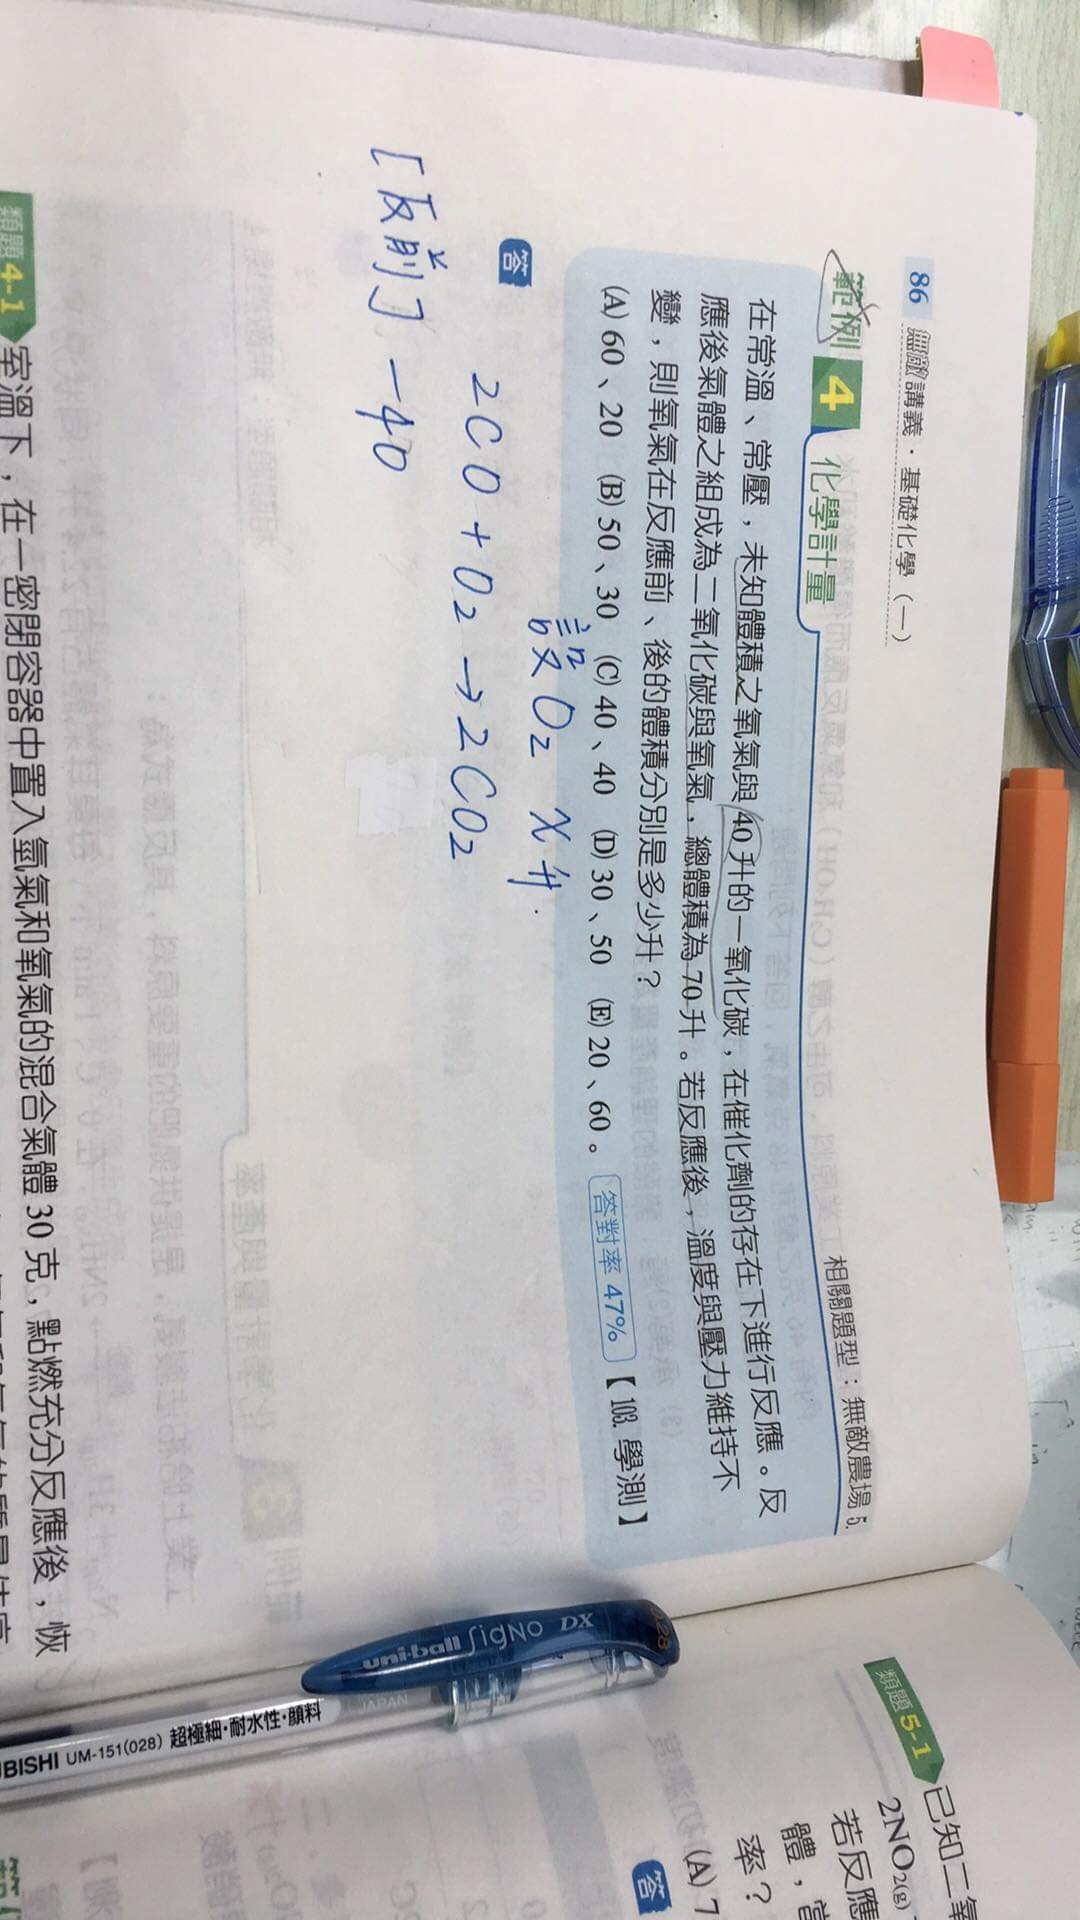 86 無敵講義．基礎化學（一）
範例4 化學計量
相關題型：無敵農場 5.
在常溫、常壓，未知體積之氧氣與 40 升的一氧化碳，在催化劑的存在下進行反應。反
應後氣體之組成為二氧化碳與氧氣，總體積為 70 升。若反應後，溫度與壓力維持不
變，則氧氣在反應前、後的體積分別是多少升？
(A) 60、20 (B) 50、30 (C) 40、40 (D) 30、50 (E) 20、60。 答對率 47% 【103. 學測】
答
設 O₂ X 升.
2CO + O₂ → 2CO₂
[反前] -40
類題4-1 室溫下，在一密閉容器中置入氫氣和氧氣的混合氣體 30 克，點燃充分反應後，恢
類題5-1 已知二氧
2NO₂(g)
若反應
體，當
率？
(A) 7
答
uni-ball Signo DX 028
JAPAN
BISHI UM-151(028) 超極細・耐水性・顔料